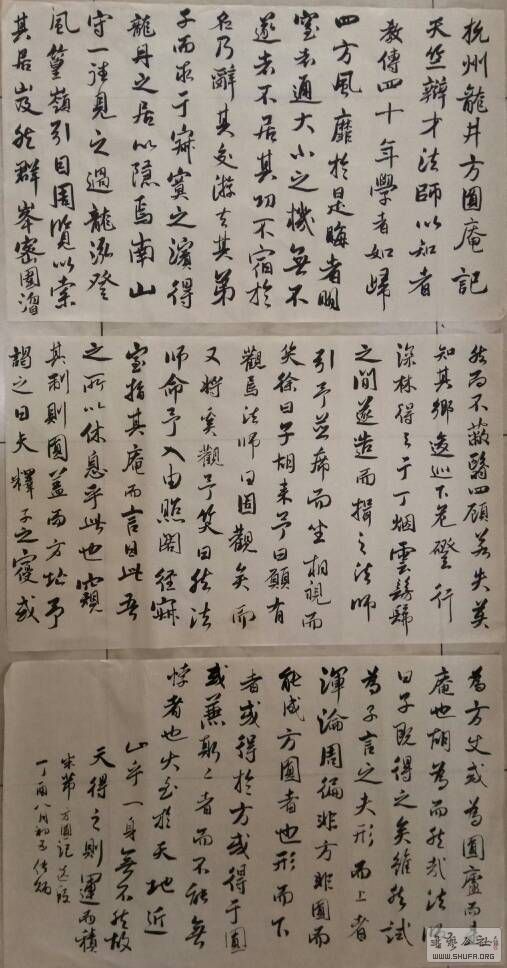 杭州龍井方圓庵記
天竺辯才法師以知者
教傳四十年學者如歸
四方風靡於是晦者明
窒者通大小之機無不
遂者不居其功不宿於
名乃辭其交游去其弟
子而求于寂寞之濱得
龍井之居以隱焉南山
守一往見之過龍泓登
風篁嶺引目周覽以索
其居岌然群峯密圍溜
然而不蔽翳四顧若失莫
知其鄉逡巡下危磴行
深林得之于丁烟雲髣髴
之間遂造而揖之法師
引予並席而坐相視而
笑徐曰子胡來予曰願有
觀焉法師曰固觀矣而
又將奚觀予笑曰然法
師命予入由照閣經寂
室指其庵而言曰此吾
之所以休息乎此也窺
其制則圓蓋而方址予
謁之曰夫釋子之寢或
為方丈或為圓廬而是
庵也胡為而然哉法師
曰子既得之矣雖然試
為子言之夫形而上者
渾淪周徧非方非圓而
能成方圓者也形而下
者或得於方或得于圓
或兼斯二者而不能無
悖者也大至於天地近
止乎一身無不然故
天得之則運而積
米芾方圓記
丁酉八月初
WWW.SHUFA.ORG